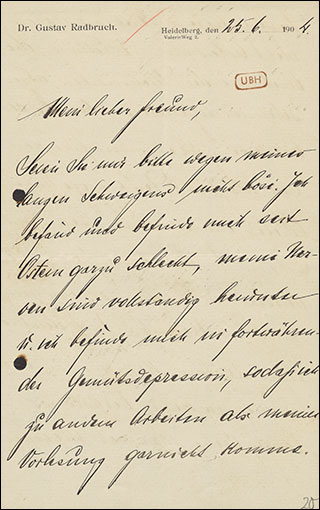 Dr. Gustav Radbruch.
Heidelberg, den 25. 6. 1904.
Valerieweg 2.
UBH
Mein lieber Freund,
Seien Sie mir bitte wegen meines
langen Schweigens nicht böse. Ich
befand und befinde mich seit
Ostern gar zu schlecht, meine Ner-
ven sind vollständig herunter
u. ich befinde mich in fortwähren-
der Gemütsdepression, sodaß ich
zu andern Arbeiten als meiner
Vorlesung garnicht komme.
20